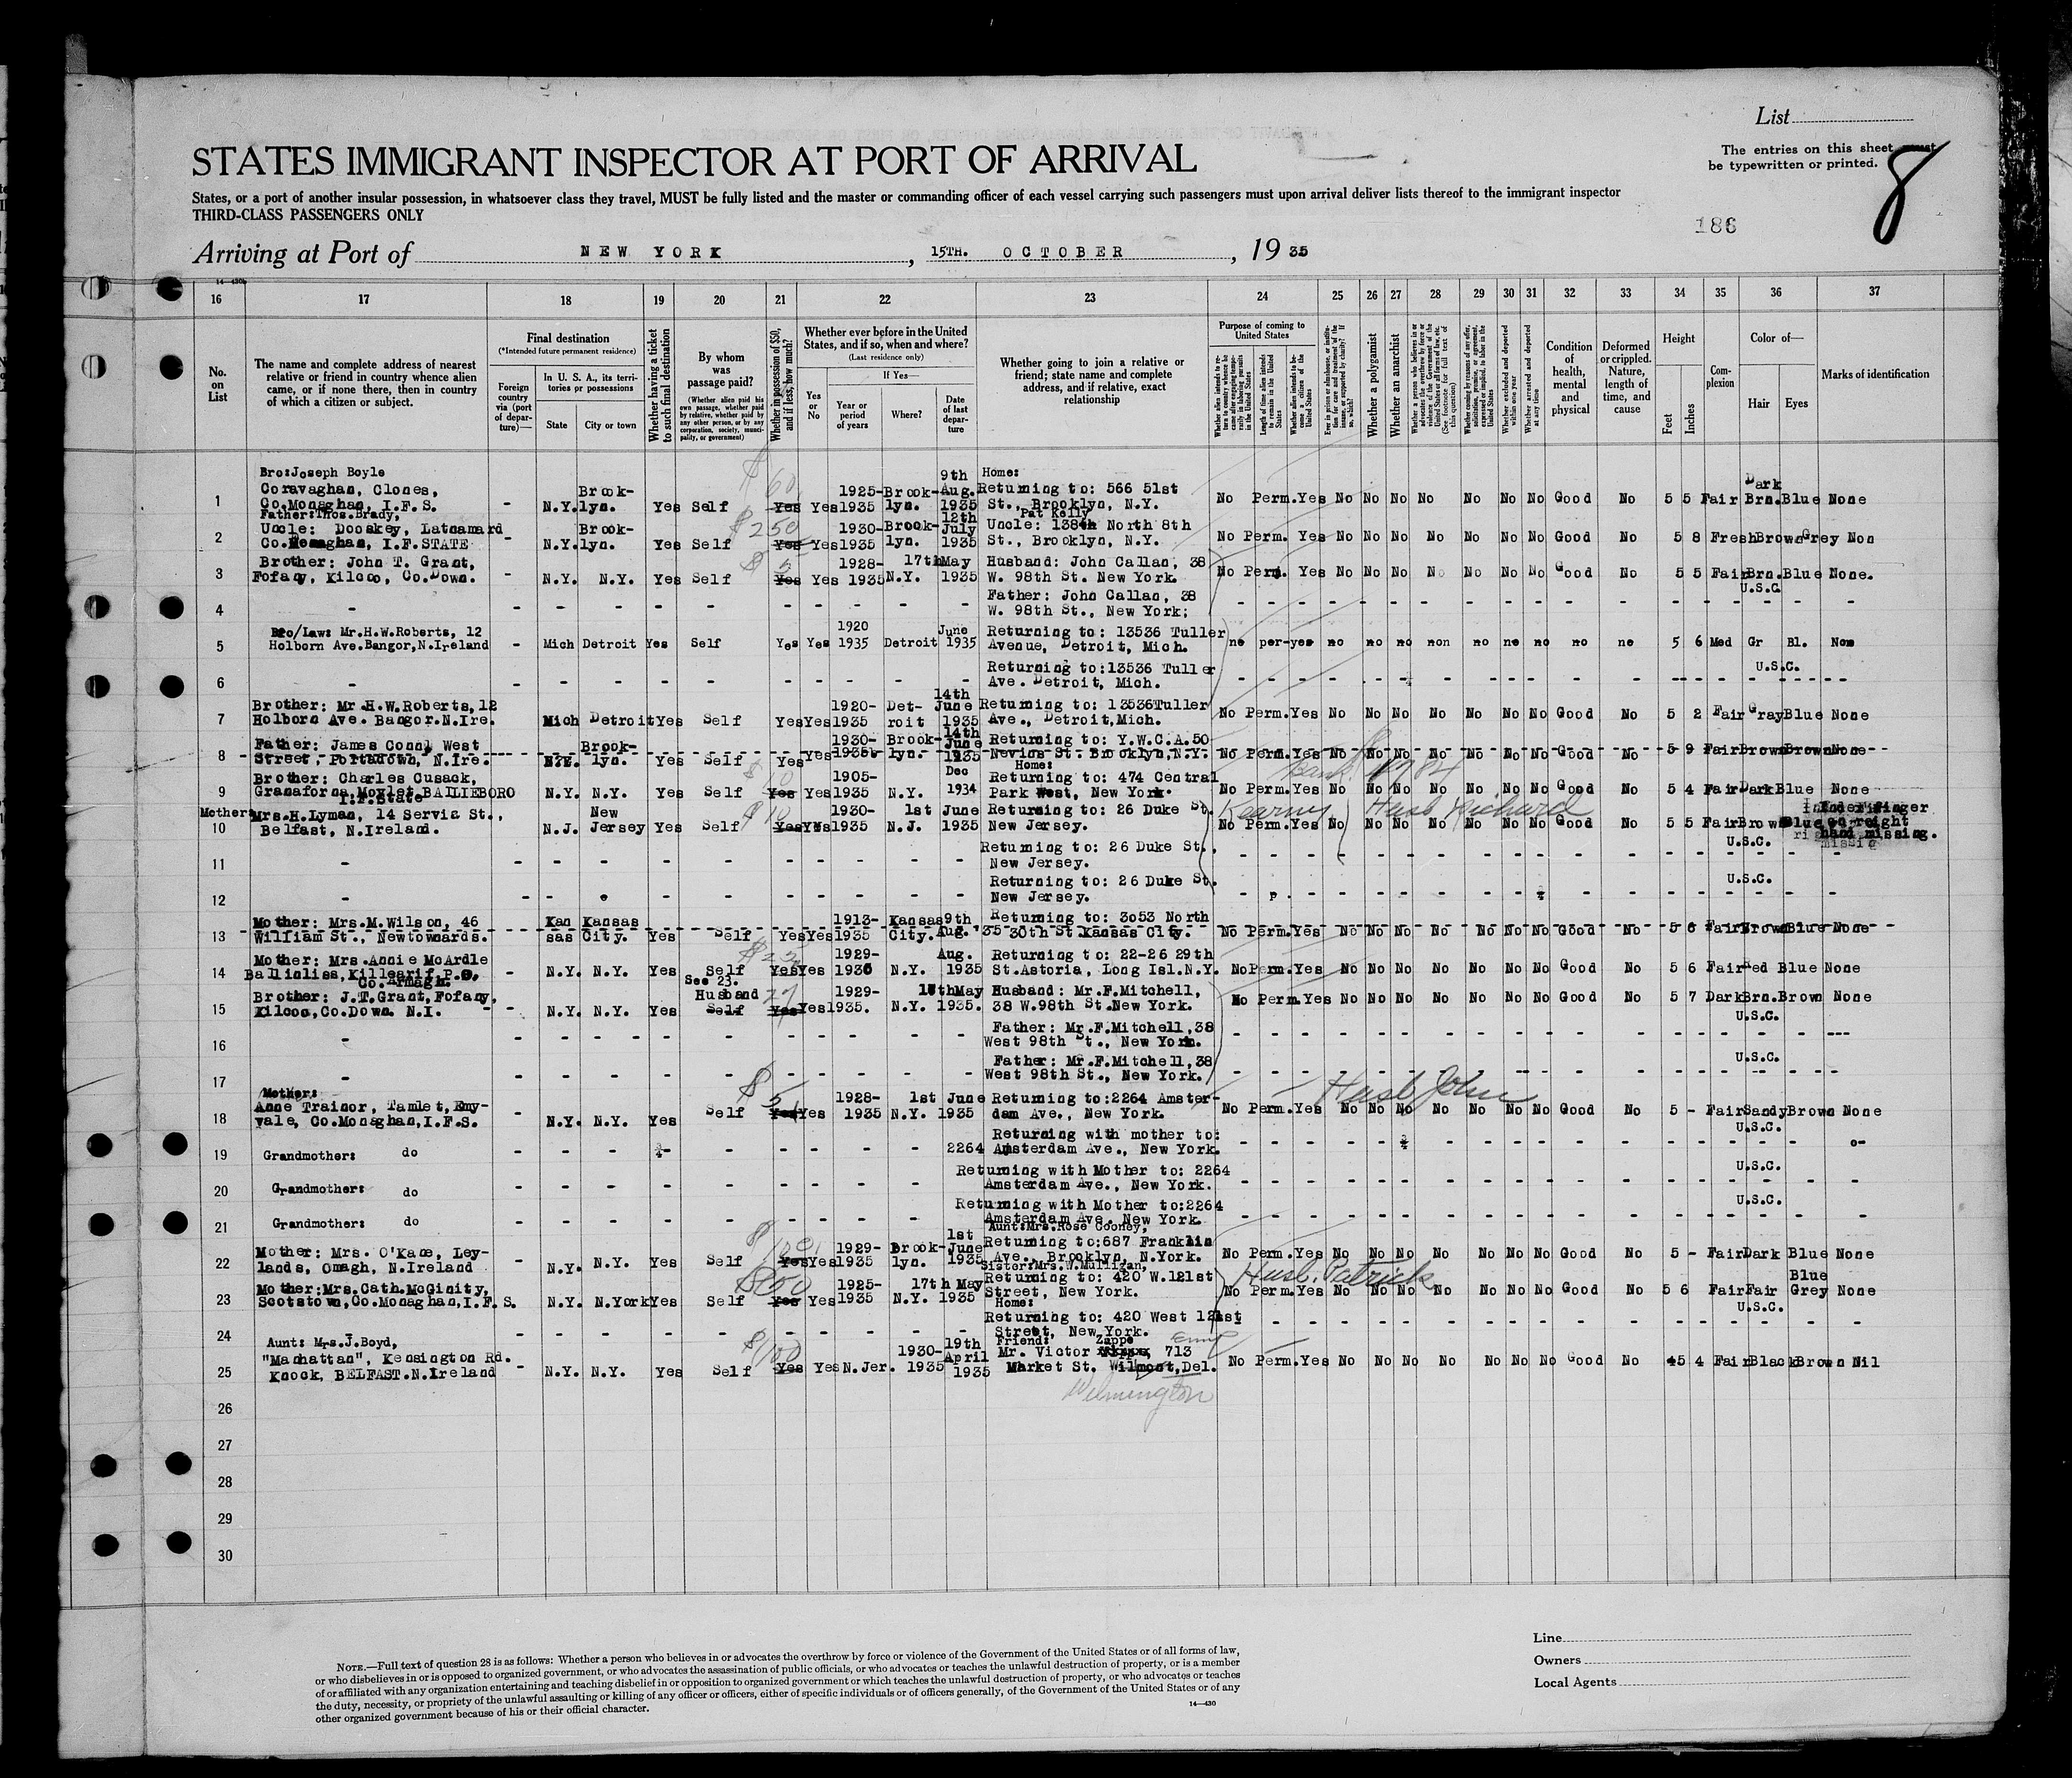 List
The entries on this sheet must
be typewritten or printed.
8
186
STATES IMMIGRANT INSPECTOR AT PORT OF ARRIVAL
States, or a port of another insular possession, in whatsoever class they travel, MUST be fully listed and the master or commanding officer of each vessel carrying such passengers must upon arrival deliver lists thereof to the immigrant inspector
THIRD-CLASS PASSENGERS ONLY
Arriving at Port of NEW YORK, 15TH. OCTOBER, 19 35
16 17 18 19 20 21 22 23 24 25 26 27 28 29 30 31 32 33 34 35 36 37
No. on List
The name and complete address of nearest relative or friend in country whence alien came, or if none there, then in country of which a citizen or subject.
Final destination
(*Intended future permanent residence)
Foreign country via (port of departure)—
In U. S. A., its territories or possessions
State
City or town
Whether having a ticket to such final destination
By whom was passage paid?
(Whether alien paid his own passage, whether paid by relative, whether paid by any other person, or by any corporation, society, municipality, or government)
Whether in possession of $50, and if less, how much?
Whether ever before in the United States, and if so, when and where?
(Last residence only)
Yes or No
If Yes—
Year or period of years
Where?
Date of last departure
Whether going to join a relative or friend; state name and complete address, and if relative, exact relationship
Purpose of coming to United States
Whether a polygamist
Whether an anarchist
Condition of health, mental and physical
Deformed or crippled. Nature, length of time, and cause
Height
Feet
Inches
Complexion
Color of—
Hair
Eyes
Marks of identification
1 Bro:Joseph Boyle Coravaghan, Clones, Co.Monaghan, I.F.S. - N.Y. Brook-lyn. Yes Self $60 Yes Yes 1925-1935 Brook-lyn. 9th Aug. 1935 Home: Returning to: 566 51st St., Brooklyn, N.Y. No Perm. Yes No No No No No No No Good No 5 5 Fair Dark Brn. Blue None
2 Father:Thos.Brady, Uncle: Dooskey, Latnamard Co.Monaghan, I.F.STATE N.Y. Brook-lyn. Yes Self $250 Yes Yes 1930-1935 Brook-lyn. 12th July 1935 Pat Kelly Uncle: 138 North 8th St., Brooklyn, N.Y. No Perm. Yes No No No No No No No Good No 5 8 Fresh Brown Grey Non
3 Brother: John T. Grant, Fofany, Kilcoo, Co.Down. - N.Y. N.Y. Yes Self $5 Yes Yes 1928-1935 N.Y. 17th May 1935 Husband: John Callan, 38 W. 98th St. New York. No Perm. Yes No No No No No No No Good No 5 5 Fair Brn. Blue None.
4 - Father: John Callan, 38 W. 98th St., New York; U.S.C.
5 Bro/Law: Mr.H.W.Roberts, 12 Holborn Ave.Bangor,N.Ireland - Mich Detroit Yes Self Yes Yes 1920 1935 Detroit June 1935 Returning to: 13536 Tuller Avenue, Detroit, Mich. no per- yes no no no non no no no no ne 5 6 Med Gr Bl. Non
6 - Returning to:13536 Tuller Ave. Detroit, Mich. U.S.C.
7 Brother: Mr.H.W.Roberts,12 Holborn Ave. Bangor.N.Ire. Mich Detroit Yes Self Yes Yes 1920-1935 Det-roit 14th June 1935 Returning to: 13536Tuller Ave., Detroit,Mich. No Perm. Yes No No No No No No No Good No 5 2 Fair Gray Blue None
8 Father: James Conn, West Street, Portadown, N.Ire. N.Y. Brook-lyn. Yes Self Yes Yes 1930-1935 Brook-lyn. 14th June 1935 Returning to: Y.W.C.A.50 Nevins St. Brooklyn,N.Y. No Perm. Yes No No No No No No No Good No 5 9 Fair Brown Brown None
9 Brother: Charles Cusack, Granaforna, Moylet, BAILIEBORO I.F.State N.Y. N.Y. Yes Self $10 Yes Yes 1905-1935 N.Y. Dec 1934 Home: Returning to: 474 Central Park West, New York. No Perm. Yes No No No No No No No Good No 5 4 Fair Dark Blue None
10 Mother: Mrs.H.Lyman, 14 Servia St., Belfast, N.Ireland. N.J. New Jersey Yes Self $10 Yes Yes 1930-1935 N.J. 1st June 1935 Returning to: 26 Duke St. New Jersey. Kearny Husb Richard No Perm. Yes No No No No No No No Good No 5 5 Fair Brown Blue Index finger on right hand missing.
11 - Returning to: 26 Duke St., New Jersey. U.S.C.
12 - Returning to: 26 Duke St. New Jersey. U.S.C.
13 Mother: Mrs.M.Wilson, 46 William St., Newtownards. Kansas Kansas City. Yes Self Yes Yes 1913-1935 Kansas City. 9th Aug.'35 Returning to: 3053 North 30th St.Kansas City. No Perm. Yes No No No No No No No Good No 5 6 Fair Brown Blue None
14 Mother: Mrs.Annie McArdle Ballinliss,Killearif P.O. Co.Armagh. - N.Y. N.Y. Yes Self Yes Yes 1929-1935 N.Y. Aug. 1935 Returning to: 22-26 29th St.Astoria, Long Isl.N.Y. No Perm. Yes No No No No No No No Good No 5 6 Fair Red Blue None
15 Brother: J.T.Grant,Fofany, Kilcoo,Co.Down. N.I. - N.Y. N.Y. Yes See 23. Husband Self 27 Yes Yes 1929-1935. N.Y. 17th May 1935. Husband: Mr.F.Mitchell, 38 W.98th St.New York. No Perm. Yes No No No No No No No Good No 5 7 Dark Brn. Brown None
16 - Father: Mr.F.Mitchell,38 West 98th St., New York. U.S.C.
17 - Father: Mr.F.Mitchell,38 West 98th St., New York. U.S.C.
18 Mother: Anne Trainor, Tamlet, Emy-vale, Co.Monaghan,I.F.S. N.Y. N.Y. Yes Self $5 Yes Yes 1928-1935 N.Y. 1st June 1935 Returning to:2264 Amster-dam Ave., New York. Husb John No Perm. Yes No No No No No No No Good No 5 - Fair Sandy Brown None
19 Grandmother: do Returning with mother to: 2264 Amsterdam Ave., New York. U.S.C.
20 Grandmother: do Returning with Mother to: 2264 Amsterdam Ave., New York. U.S.C.
21 Grandmother: do Returning with Mother to:2264 Amsterdam Ave. New York. U.S.C.
22 Mother: Mrs. O'Kane, Ley-lands, Omagh, N.Ireland N.Y. N.Y. Yes Self Yes Yes 1929-1935 Brook-lyn. 1st June 1935 Aunt:Mrs.Rose Cooney, Returning to:687 Franklin Ave., Brooklyn, N.York. No Perm. Yes No No No No No No No Good No 5 - Fair Dark Blue None
23 Mother:Mrs.Cath.McGinity, Scotstown,Co.Monaghan,I.F.S. N.Y. N.York Yes Self Yes Yes 1925-1935 N.Y. 17th May 1935 Sister:Mrs.W.Mulligan, Returning to: 420 W.121st Street, New York. Husb. Patrick No Perm. Yes No No No No No No No Good No 5 6 Fair Fair Blue Grey None
24 - Home: Returning to: 420 West 121st Street, New York. U.S.C.
25 Aunt: Mrs.J.Boyd, "Manhattan", Kensington Rd. Knock, BELFAST.N.Ireland - N.Y. N.Y. Yes Self $100 Yes Yes N.Jer. 1930-1935 19th April 1935 Friend: Mr. Victor Zappe, 713 Market St. Wilmont,Del. Wilmington No Perm. Yes No No No No No No No Good No 5 4 Fair Black Brown Nil
26
27
28
29
30
NOTE.—Full text of question 28 is as follows: Whether a person who believes in or advocates the overthrow by force or violence of the Government of the United States or of all forms of law,
or who disbelieves in or is opposed to organized government, or who advocates the assassination of public officials, or who advocates or teaches the unlawful destruction of property, or is a member
of or affiliated with any organization entertaining and teaching disbelief in or opposition to organized government or which teaches the unlawful destruction of property, or who advocates or teaches
the duty, necessity, or propriety of the unlawful assaulting or killing of any officer or officers, either of specific individuals or of officers generally, of the Government of the United States or of any
other organized government because of his or their official character.
14—430
Line
Owners
Local Agents